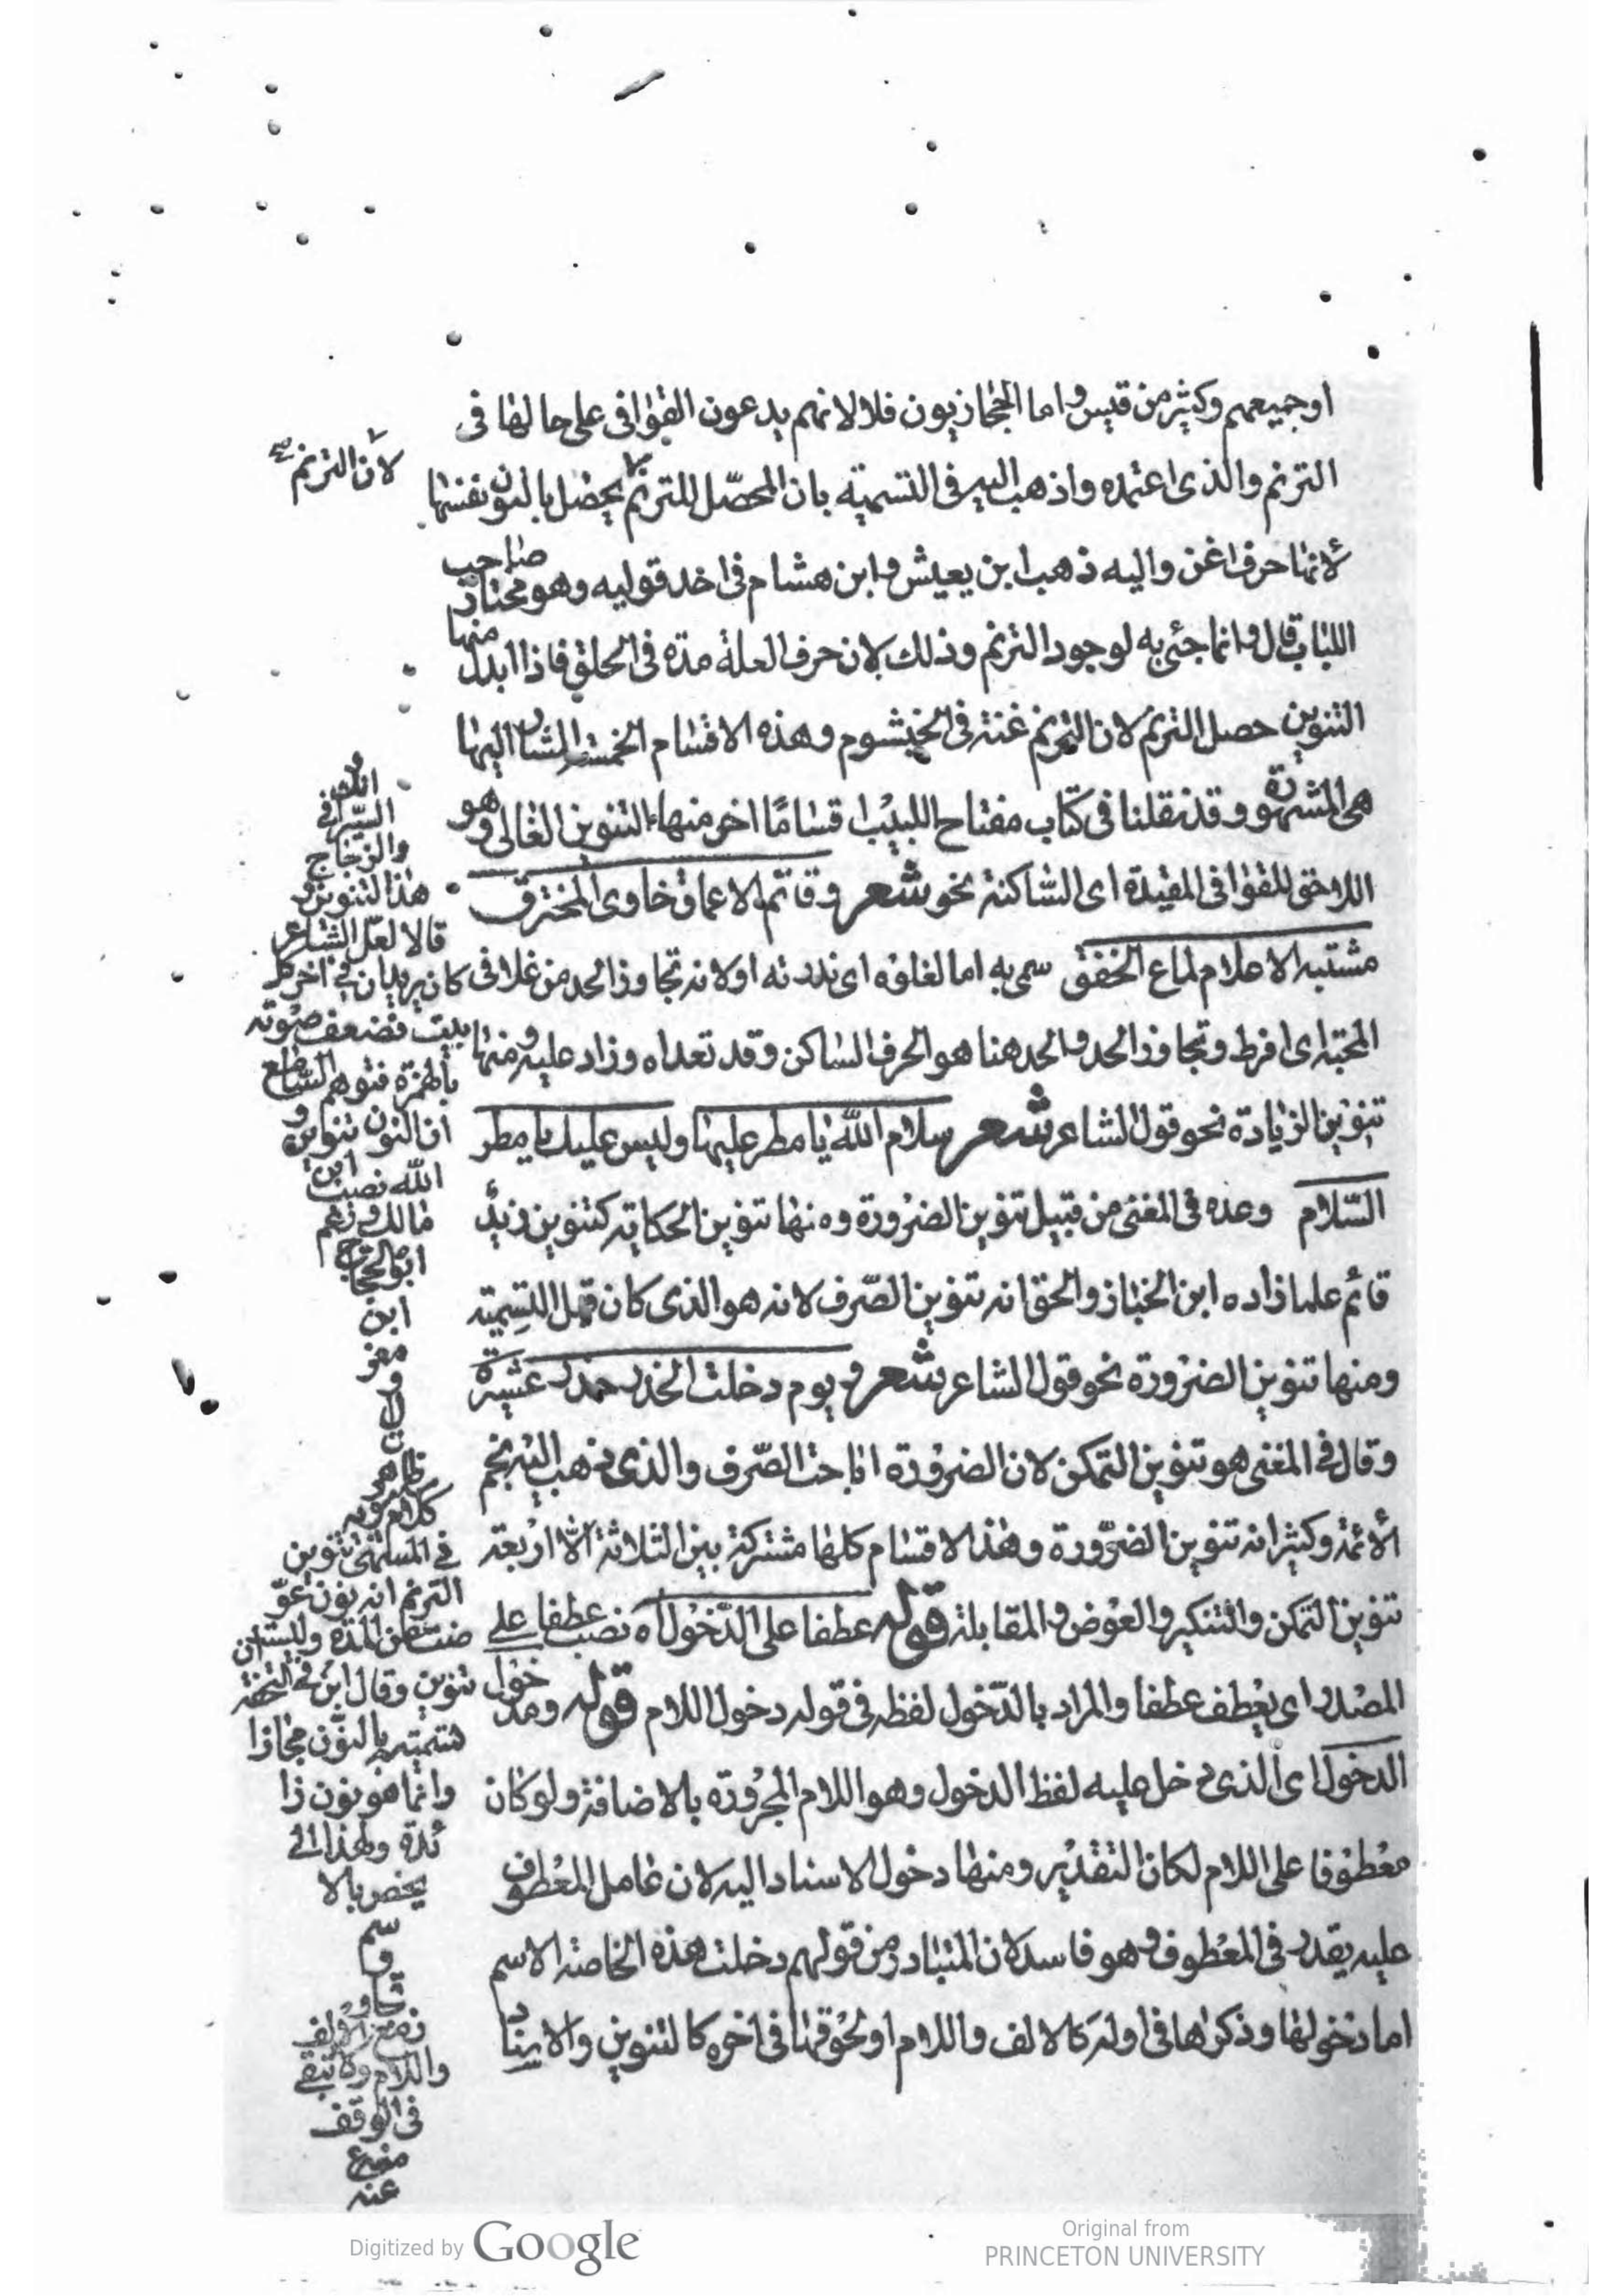 اوجميعهم وكثير من قيس واما الحجازيون فلا لانهم يدعون القوافى على حالها فى
الترنم والذى اعتمده واذهب اليه فى التسمية بان المحصل للترنم يحصل بالنون نفسها
لانها حرف اغن واليه ذهب ابن يعيش وابن هشام فى احد قوليه وهو مختار صاحب
اللباب قال وانما جئ به لوجود الترنم وذلك لان حرف العلة مدة فى الحلق فاذا ابدل منها
التنوين حصل الترنم لان الترنم غنة فى الخيشوم وهذه الاقسام الخمسة المشار اليها
هى المشهورة وقد نقلنا فى كتاب مفتاح اللبيب اقسامًا اخر منها التنوين الغالى وهو
اللاحق للقوافى المقيدة اى الساكنة نحو شعر وقاتم الاعماق خاوى المخترق
مشتبه الاعلام لماع الخفق سمى به اما لغلوه اى ندرته او لانه تجاوز الحد من غلا فى
المحبة اى افرط وتجاوز الحد والحد هنا هو الحرف الساكن وقد تعداه وزاد عليه ومنها
تنوين الزيادة نحو قول الشاعر شعر سلام الله يا مطر عليها وليس عليك يا مطر
السّلام وعده فى المغنى من قبيل تنوين الضرورة ومنها تنوين الحكاية كتنوين زيد
قائم علما زاده ابن الخباز والحق انه تنوين الصّرف لانه هو الذى كان قبل التسمية
ومنها تنوين الضرورة نحو قول الشاعر شعر ويوم دخلت الخدر خدر عنيزة
وقال فى المغنى هو تنوين التمكن لان الضرورة اباحت الصّرف والذى ذهب اليه نجم
الأئمة وكثير انه تنوين الضّرورة وهذا الاقسام كلها مشتركة بين الثلاثة الا اربعة
تنوين التمكن والتنكير والعوض والمقابلة قوله عطفا على الدّخول اه نصب عطفا على
المصدر اى يعطف عطفا والمراد بالدّخول لفظه فى قوله دخول اللام قوله ومدخول
الدخول اى الذى دخل عليه لفظ الدخول وهو اللام المجرورة بالاضافة ولو كان
معطوفا على اللام لكان التقدير ومنها دخول الاسناد اليه لان عامل المعطوف
عليه يقدر فى المعطوف وهو فاسد لان المتبادر من قولهم دخلت هذه الخاصة الاسم
اما دخولها وذكرها فى اوله كالالف واللام او لحوقها فى اخره كالتنوين والا
لان الترنم
السيرافى
والزجاج
هذا التنوين و
قالا لعل الشاعر
كان يريد ان فى اخر كل
بيت فضعف صوته
بالهمزة فتوهم السامع
ان النون تنوين و
ابن
مالك وزعم
ابو الحجاج
ابن
معزو
ز
ان
ظاهر
كلام سيبويه
فى المسمى تنوين
الترنم انه نون عو
ضت عن المدة وليست ان
تنوين وقال ابن فى التحفة
تسميته بالنون مجازا
وانما هو نون زا
ئدة ولهذا
يختص بالا
سم
الالف
واللام ولا تبقى
فى الوقف
عنه
Digitized by Google
Original from
PRINCETON UNIVERSITY